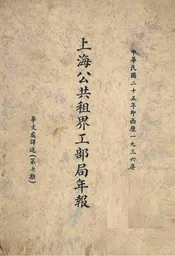 中華民國二十五年即西歷一九三六年
上海公共租界工部局年報
華文處譯述（第七期）